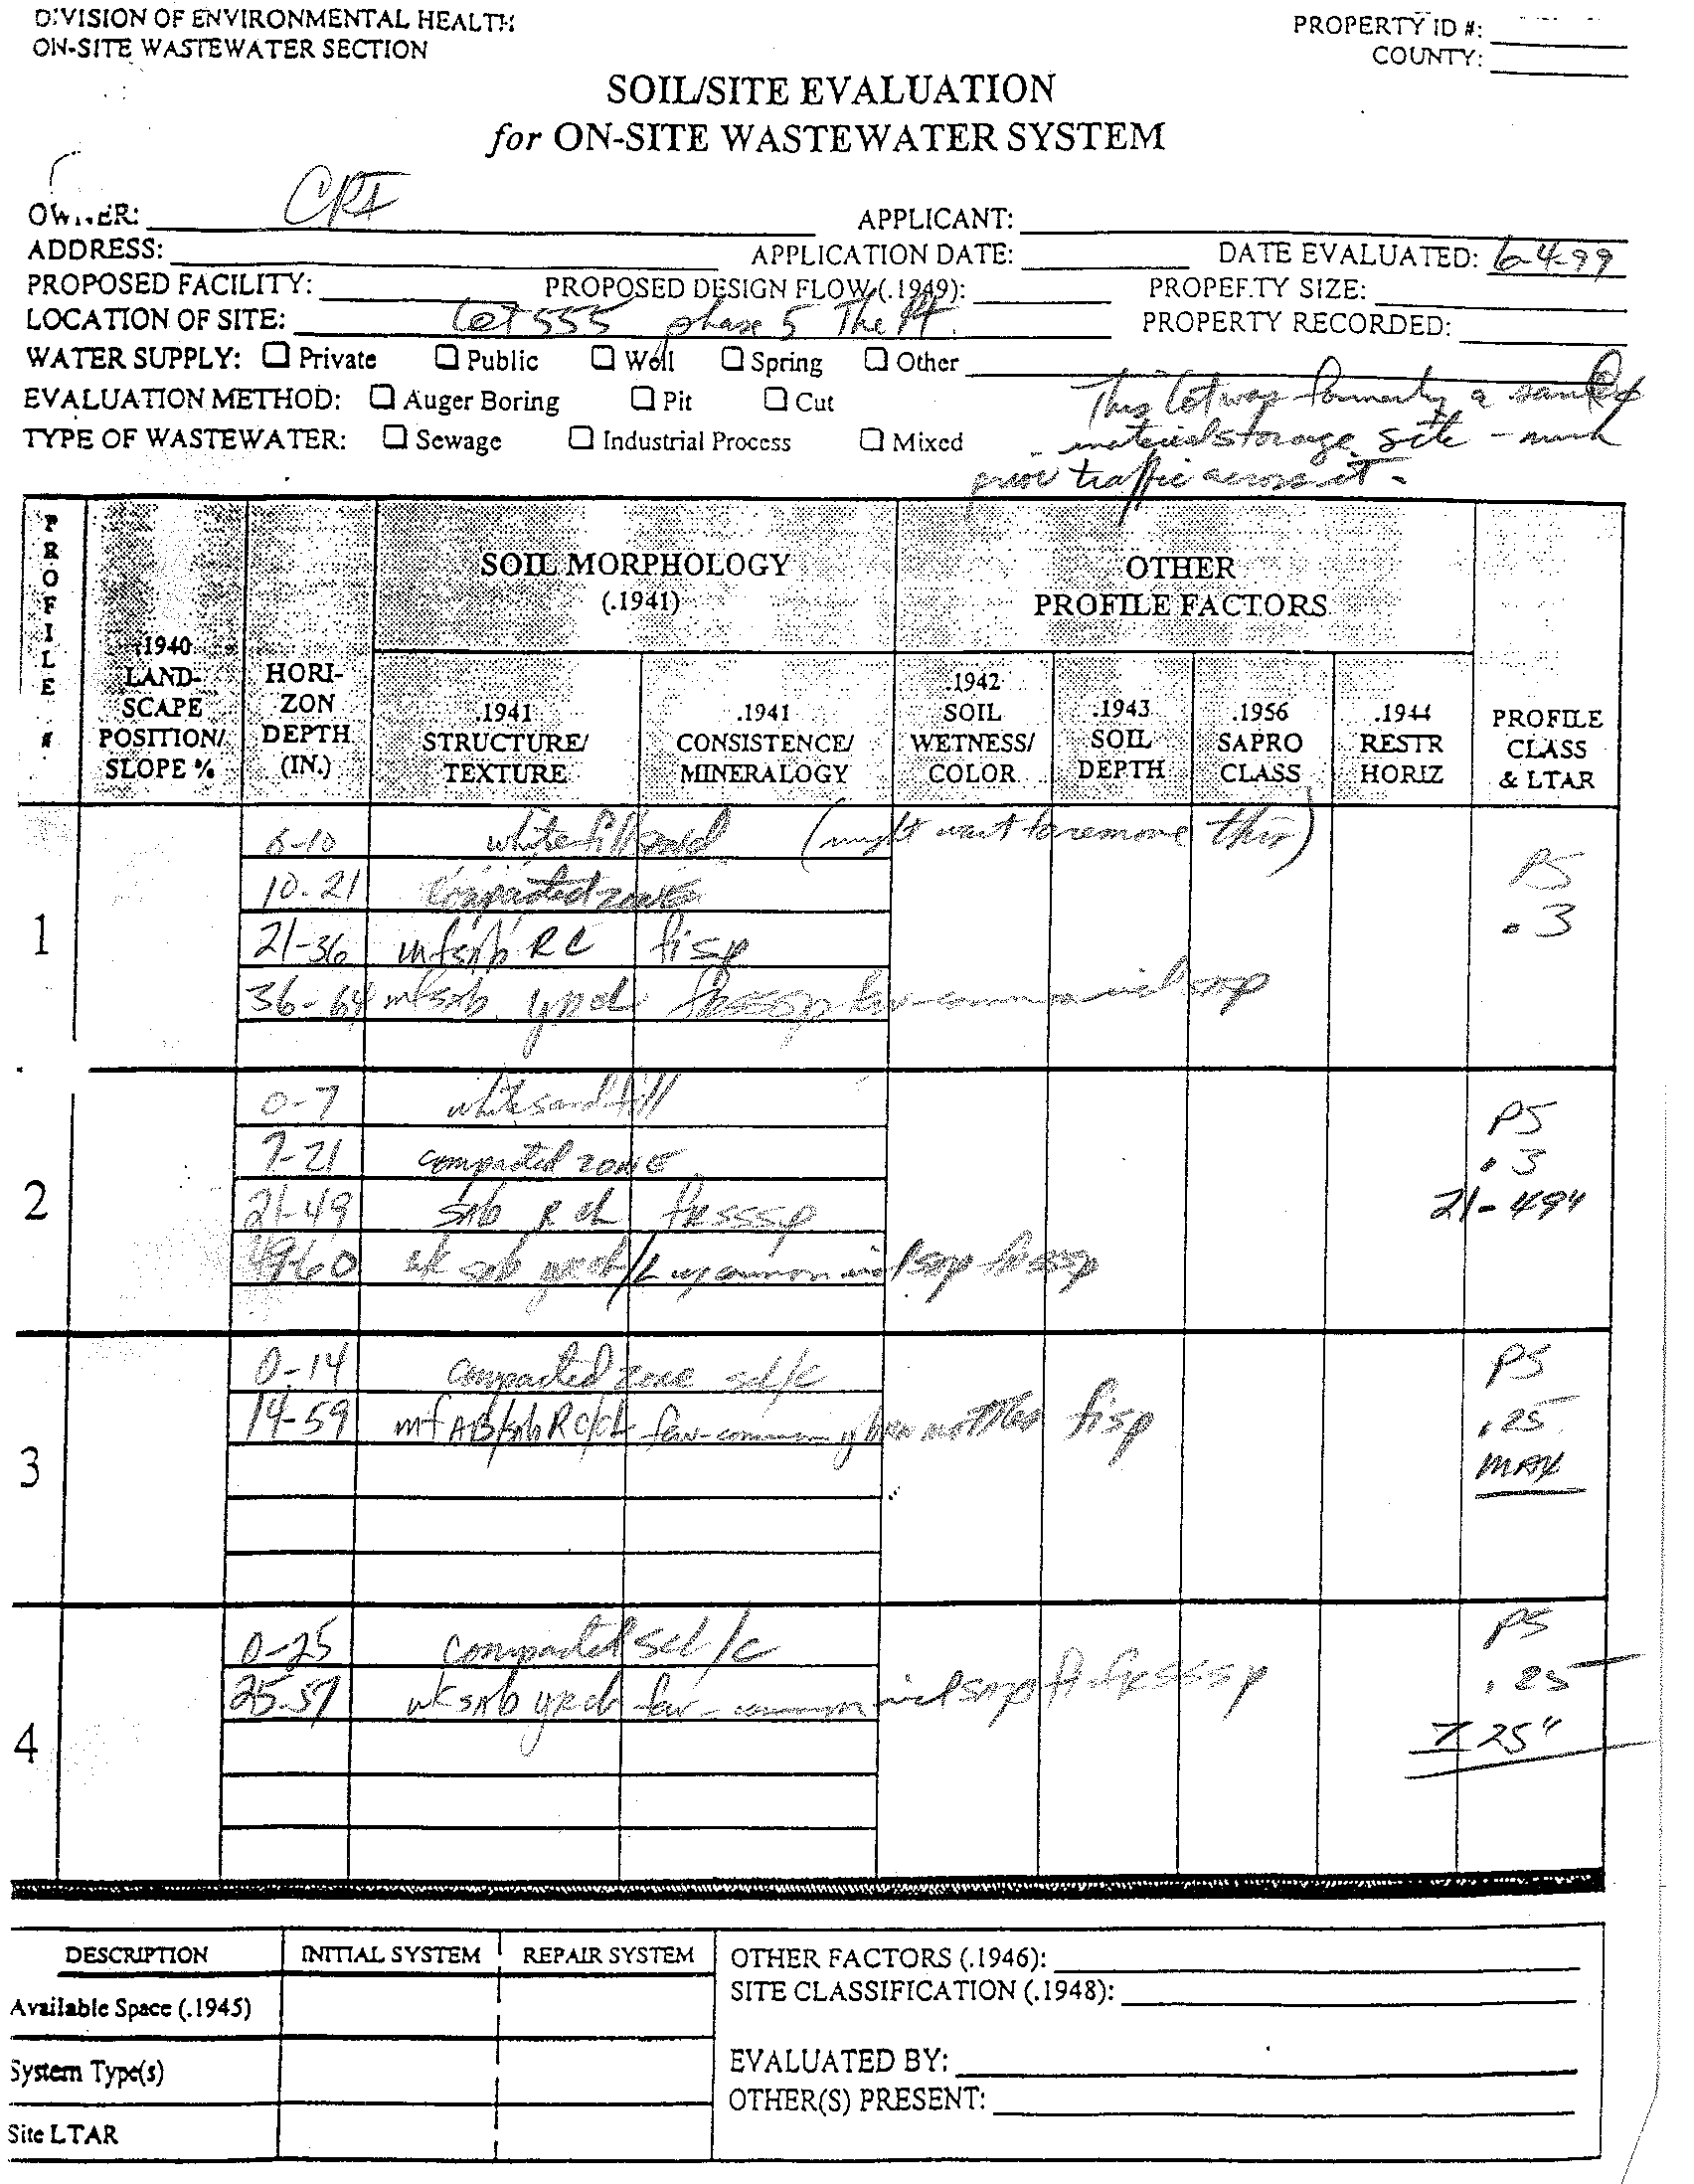 DIVISION OF ENVIRONMENTAL HEALTH
ON-SITE WASTEWATER SECTION
PROPERTY ID #:
COUNTY:
SOIL/SITE EVALUATION
for ON-SITE WASTEWATER SYSTEM
OWNER: CRI
APPLICANT:
ADDRESS: APPLICATION DATE: DATE EVALUATED: 6-4-99
PROPOSED FACILITY: PROPOSED DESIGN FLOW (.1949): PROPERTY SIZE:
LOCATION OF SITE: Lot 555 phase 5 The Pt. PROPERTY RECORDED:
WATER SUPPLY: ☐ Private ☐ Public ☐ Well ☐ Spring ☐ Other
EVALUATION METHOD: ☐ Auger Boring ☐ Pit ☐ Cut
TYPE OF WASTEWATER: ☐ Sewage ☐ Industrial Process ☐ Mixed
This Lot was formerly a sand &
material storage site - much
prior traffic across it -
PROFILE #
.1940 LAND-SCAPE POSITION/ SLOPE %
HORI-ZON DEPTH (IN.)
SOIL MORPHOLOGY (.1941)
.1941 STRUCTURE/ TEXTURE
.1941 CONSISTENCE/ MINERALOGY
OTHER PROFILE FACTORS
.1942 SOIL WETNESS/ COLOR
.1943 SOIL DEPTH
.1956 SAPRO CLASS
.1944 RESTR HORIZ
PROFILE CLASS & LTAR
1
0-10 white fill sand (might want to remove this)
10-21 compacted zone
21-36 mfsab RC fisp
36-64 mfsab yrcl frsssp few-common
PS
.3
2
0-7 white sand fill
7-21 compacted zone
21-49 sab R cl frsssp
49-60 wk sab yrcl/L common
PS
.3
21-49"
3
0-14 compacted zone scl/c
14-59 mf AB/sab Rc/cL few-common mottles fisp
PS
.25
MAX
4
0-25 compacted scl/c
25-57 wk sab yrcl few-common fi-frsssp
PS
.25
7 25"
DESCRIPTION INITIAL SYSTEM REPAIR SYSTEM
Available Space (.1945)
System Type(s)
Site LTAR
OTHER FACTORS (.1946):
SITE CLASSIFICATION (.1948):
EVALUATED BY:
OTHER(S) PRESENT: